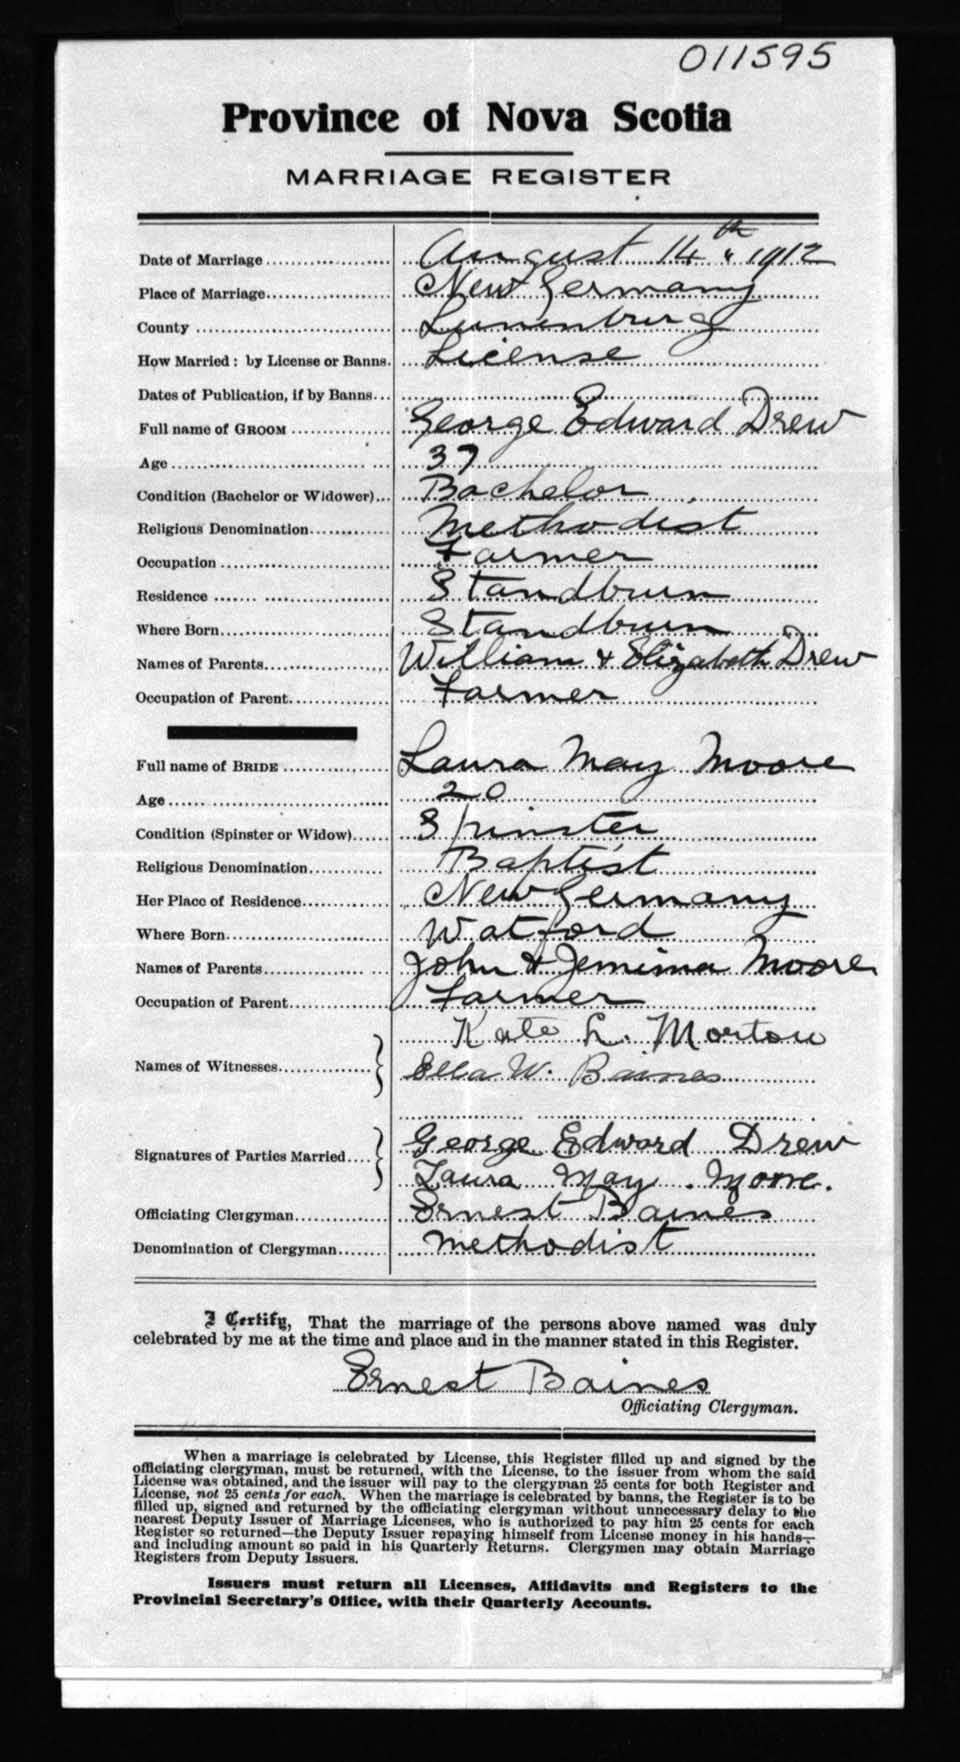 011595
Province of Nova Scotia
MARRIAGE REGISTER
Date of Marriage August 14th 1912
Place of Marriage New Germany
County Lunenburg
How Married: by License or Banns. License
Dates of Publication, if by Banns
Full name of GROOM George Edward Drew
Age 37
Condition (Bachelor or Widower) Bachelor
Religious Denomination Methodist
Occupation Farmer
Residence Standburn
Where Born Standburn
Names of Parents William & Elizabeth Drew
Occupation of Parent Farmer
Full name of BRIDE Laura May Moore
Age 20
Condition (Spinster or Widow) Spinster
Religious Denomination Baptist
Her Place of Residence New Germany
Where Born Watford
Names of Parents John & Jemima Moore
Occupation of Parent Farmer
Kate L. Morton
Names of Witnesses Ella W. Baines
George Edward Drew
Signatures of Parties Married Laura May Moore.
Officiating Clergyman Ernest Baines
Denomination of Clergyman Methodist
I Certify, That the marriage of the persons above named was duly
celebrated by me at the time and place and in the manner stated in this Register.
Ernest Baines
Officiating Clergyman.
When a marriage is celebrated by License, this Register filled up and signed by the
officiating clergyman, must be returned, with the License, to the issuer from whom the said
License was obtained, and the issuer will pay to the clergyman 25 cents for both Register and
License, not 25 cents for each. When the marriage is celebrated by banns, the Register is to be
filled up, signed and returned by the officiating clergyman without unnecessary delay to the
nearest Deputy Issuer of Marriage Licenses, who is authorized to pay him 25 cents for each
Register so returned—the Deputy Issuer repaying himself from License money in his hands—
and including amount so paid in his Quarterly Returns. Clergymen may obtain Marriage
Registers from Deputy Issuers.
Issuers must return all Licenses, Affidavits and Registers to the
Provincial Secretary's Office, with their Quarterly Accounts.